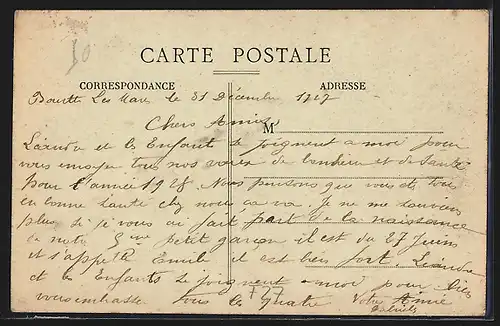 30
CARTE POSTALE
CORRESPONDANCE
ADRESSE
Les Mars le 31 Décembre 1927
Chers Amis
M
Léandre et les Enfants se joignent a moi pour
vous envoyer tous nos vœux de bonheur et de Santé
pour l'année 1928. Nous pensons que vous êtes tous
en bonne santé chez nous ca va. Je ne me souviens
plus si je vous ai fait part de la naissance
de notre 5me petit garçon il est du 27 Juin
et s'appelle Emile il est bien fort. Léandre
et les Enfants se joignent a moi pour bien
vous embrasser Tous les Quatre Votre Amie
Gabrielle